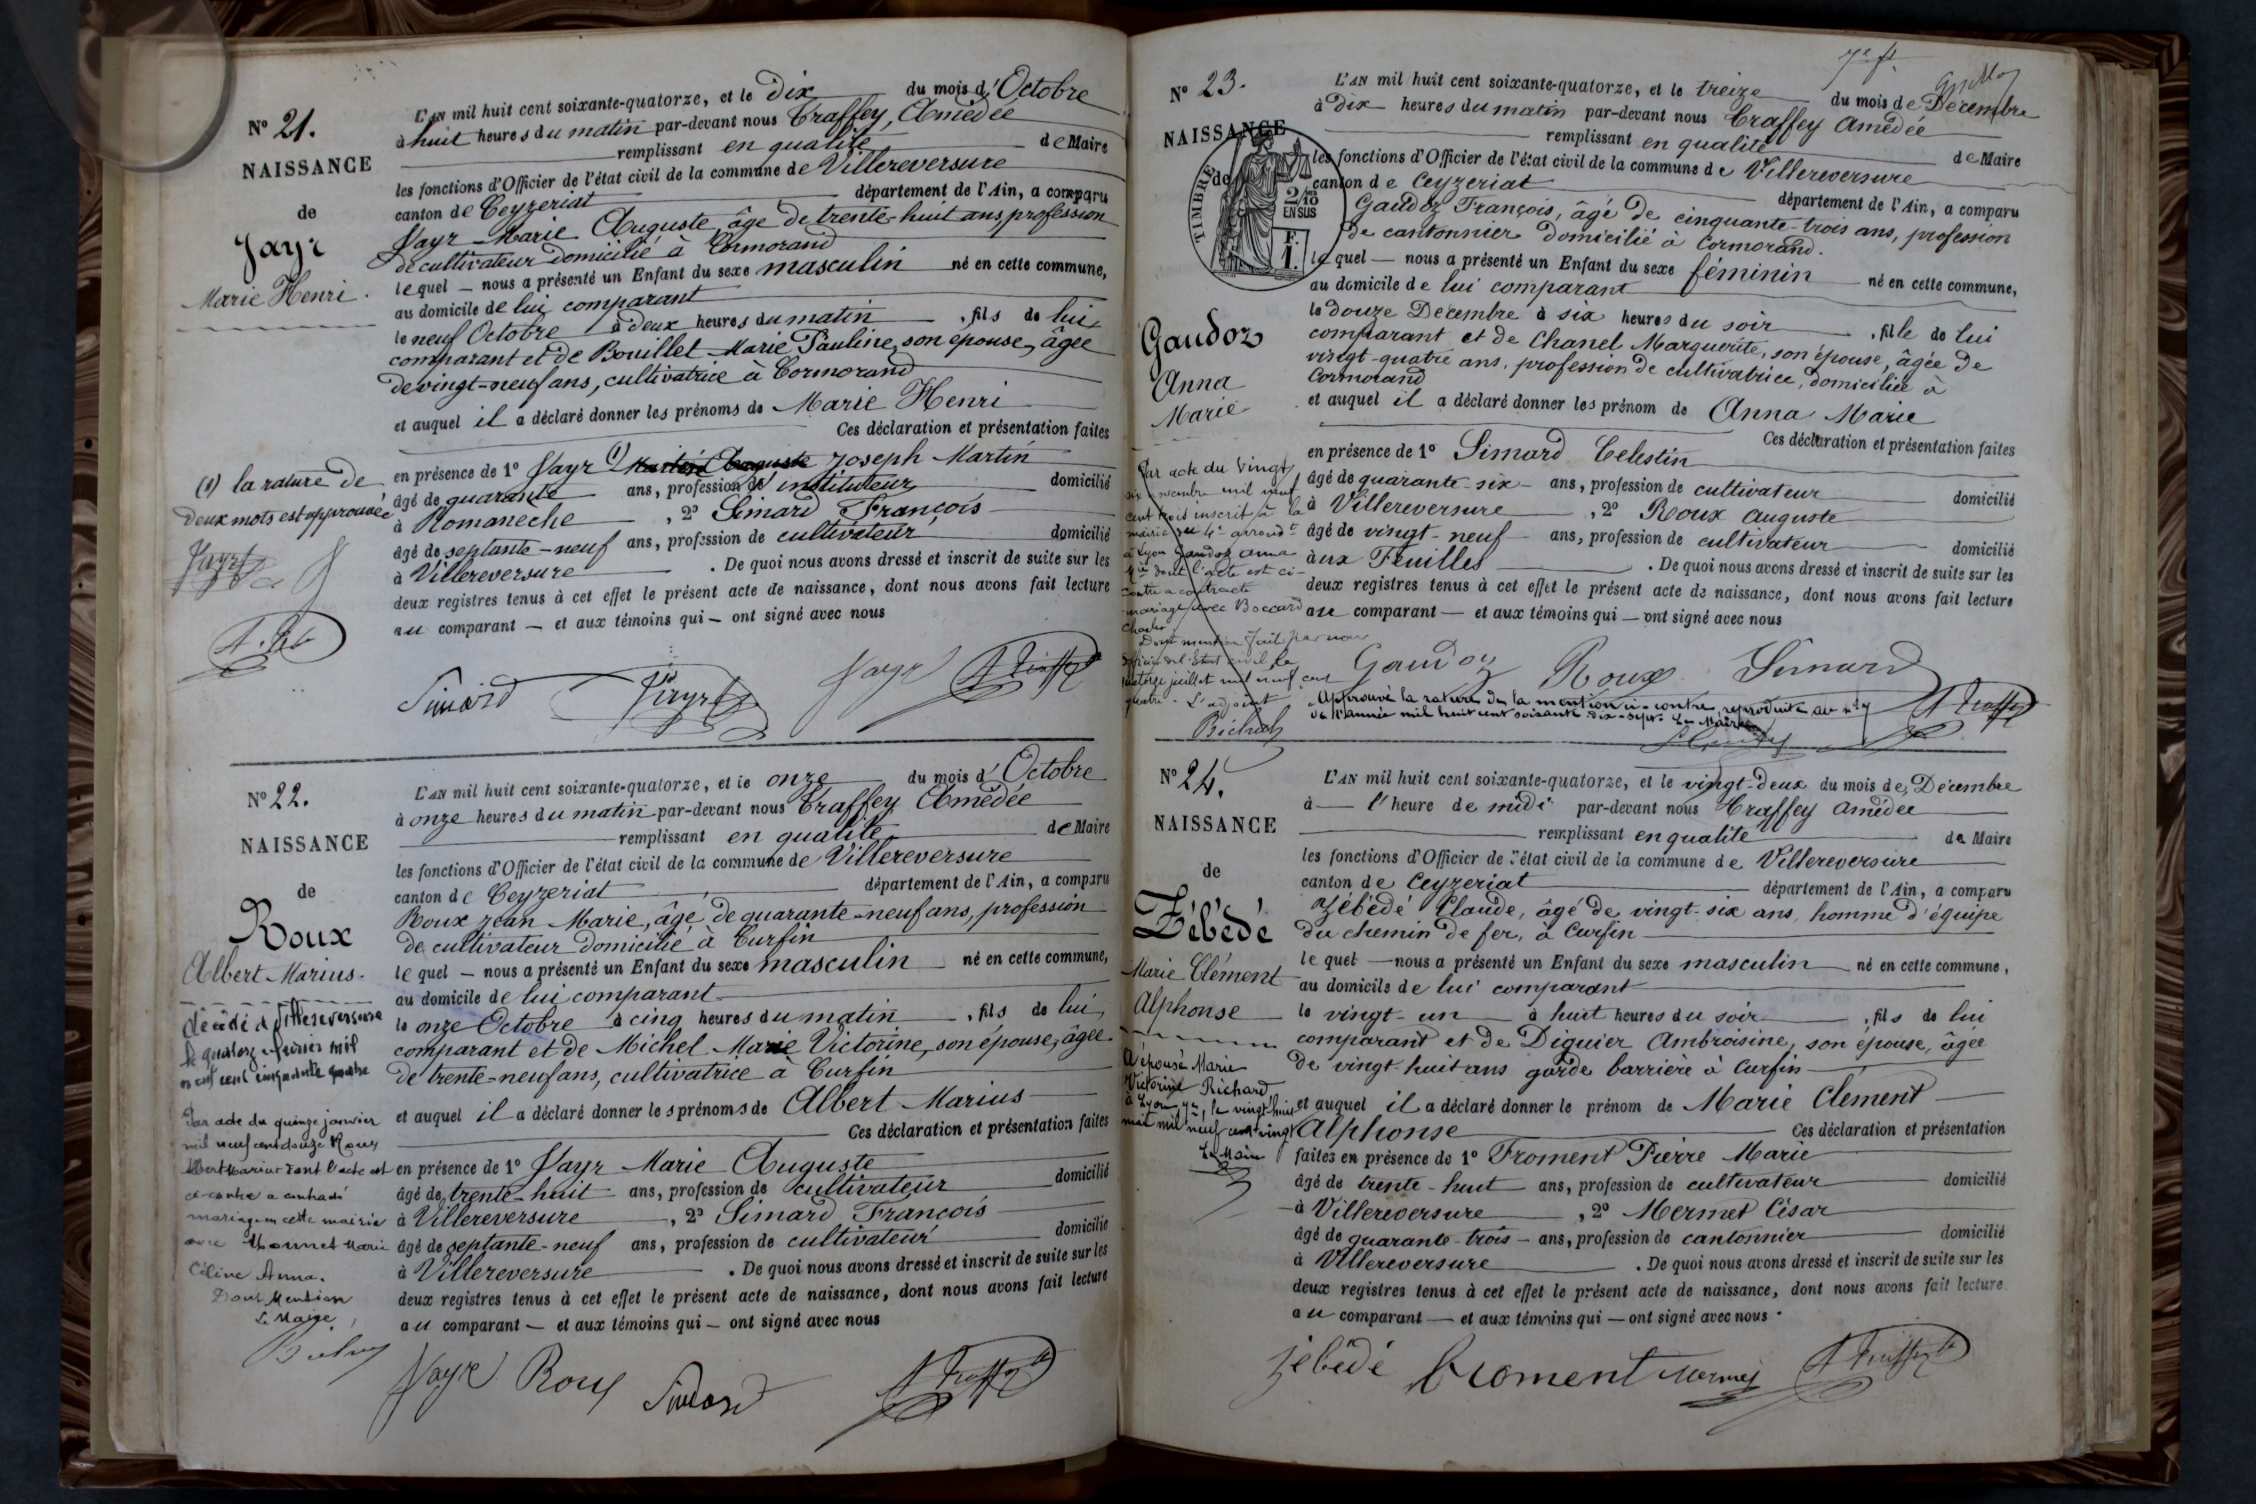 N° 21.
NAISSANCE
de
Jayr
Marie Henri.
L'AN mil huit cent soixante-quatorze, et le dix du mois d'Octobre
à huit heures du matin par-devant nous Traffey, Amédée
remplissant en qualité de Maire
les fonctions d'Officier de l'état civil de la commune de Villereversure
canton de Ceyzeriat département de l'Ain, a comparu
Jayr Marie Auguste, âgé de trente-huit ans, profession
de cultivateur domicilié à Cormorand
lequel — nous a présenté un Enfant du sexe masculin né en cette commune,
au domicile de lui comparant
le neuf Octobre à deux heures du matin, fils de lui
comparant et de Bouillet Marie Pauline, son épouse, âgée
de vingt-neuf ans, cultivatrice à Cormorand
et auquel il a déclaré donner les prénoms de Marie Henri
Ces déclaration et présentation faites
en présence de 1° Jayr (1) Joseph Martin
âgé de quarante ans, profession d'instituteur domicilié
à Romanèche, 2° Simard François
âgé de septante-neuf ans, profession de cultivateur domicilié
à Villereversure. De quoi nous avons dressé et inscrit de suite sur les
deux registres tenus à cet effet le présent acte de naissance, dont nous avons fait lecture
au comparant — et aux témoins qui — ont signé avec nous
(1) la rature de
deux mots est approuvée
Simard Jayr Jayr A Traffey
N° 22.
NAISSANCE
de
Roux
Albert Marius.
décédé à Villereversure
le quatorze février mil
neuf cent cinquante quatre
Par acte du quinze janvier
mil neuf cent douze Roux
Albert Marius dont l'acte est
ci-contre a contracté
mariage en cette mairie
avec Monnet Marie
Céline Anna.
Dont Mention
Le Maire,
L'AN mil huit cent soixante-quatorze, et le onze du mois d'Octobre
à onze heures du matin par-devant nous Traffey Amédée
remplissant en qualité de Maire
les fonctions d'Officier de l'état civil de la commune de Villereversure
canton de Ceyzeriat département de l'Ain, a comparu
Roux Jean Marie, âgé de quarante-neuf ans, profession
de cultivateur domicilié à Curfin
lequel — nous a présenté un Enfant du sexe masculin né en cette commune,
au domicile de lui comparant
le onze Octobre à cinq heures du matin, fils de lui,
comparant et de Michel Marie Victorine, son épouse, âgée
de trente-neuf ans, cultivatrice à Curfin
et auquel il a déclaré donner les prénoms de Albert Marius
Ces déclaration et présentation faites
en présence de 1° Jayr Marie Auguste
âgé de trente-huit ans, profession de cultivateur domicilié
à Villereversure, 2° Simard François
âgé de septante-neuf ans, profession de cultivateur domicilié
à Villereversure. De quoi nous avons dressé et inscrit de suite sur les
deux registres tenus à cet effet le présent acte de naissance, dont nous avons fait lecture
au comparant — et aux témoins qui — ont signé avec nous
Jayr Roux Simard A Traffey
N° 23.
NAISSANCE
de
TIMBRE
2/10
EN SUS
F.
1.
Gaudoz
Anna
Marie
L'AN mil huit cent soixante-quatorze, et le treize du mois de Décembre
à dix heures du matin par-devant nous Traffey Amédée
remplissant en qualité de Maire
les fonctions d'Officier de l'état civil de la commune de Villereversure
canton de Ceyzeriat département de l'Ain, a comparu
Gaudoz François, âgé de cinquante-trois ans, profession
de cantonnier domicilié à Cormorand.
lequel — nous a présenté un Enfant du sexe féminin né en cette commune,
au domicile de lui comparant
le douze Décembre à six heures du soir, fille de lui
comparant et de Chanel Marguerite, son épouse, âgée de
vingt-quatre ans, profession de cultivatrice, domiciliée à
Cormorand
et auquel il a déclaré donner les prénom de Anna Marie
Ces déclaration et présentation faites
en présence de 1° Simard Celestin
âgé de quarante-six ans, profession de cultivateur domicilié
à Villereversure, 2° Roux Auguste
âgé de vingt-neuf ans, profession de cultivateur domicilié
aux Feuilles. De quoi nous avons dressé et inscrit de suite sur les
deux registres tenus à cet effet le présent acte de naissance, dont nous avons fait lecture
au comparant — et aux témoins qui — ont signé avec nous
Par acte du vingt
six mil neuf
cent trois inscrit à la
mairie du 4e arrondt
à Lyon Gaudoz Anna
Mie dont l'acte est ci-
contre a contracté
mariage avec Boccard
Charles
Dont mention fait par nous
officier de l'Etat civil le
quatorze juillet mil neuf cent
quatre. L'adjoint
Gaudoz Roux Simard
Approuvé la rature de la mention ci-contre, reproduite au
de l'année mil huit cent soixante dix-sept. Le Maire
A Traffey
N° 24.
NAISSANCE
de
Zébédé
Marie Clément
Alphonse
A épousé Marie
Victorine Richard
à Lyon, le vingt huit
mai mil neuf cent vingt
Le Maire
L'AN mil huit cent soixante-quatorze, et le vingt-deux du mois de Décembre
à — l'heure de midi par-devant nous Traffey Amédée
remplissant en qualité de Maire
les fonctions d'Officier de l'état civil de la commune de Villereversure
canton de Ceyzeriat département de l'Ain, a comparu
Zébédé Claude, âgé de vingt-six ans, homme d'équipe
du chemin de fer, à Curfin
lequel — nous a présenté un Enfant du sexe masculin né en cette commune,
au domicile de lui comparant
le vingt-un à huit heures du soir, fils de lui
comparant et de Diguier Ambroisine, son épouse, âgée
de vingt-huit ans garde barrière à Curfin
et auquel il a déclaré donner le prénom de Marie Clément
Alphonse Ces déclaration et présentation
faites en présence de 1° Froment Pierre Marie
âgé de trente-huit ans, profession de cultivateur domicilié
à Villereversure, 2° Mermet César
âgé de quarante-trois — ans, profession de cantonnier domicilié
à Villereversure. De quoi nous avons dressé et inscrit de suite sur les
deux registres tenus à cet effet le présent acte de naissance, dont nous avons fait lecture
au comparant — et aux témoins qui — ont signé avec nous.
Zébédé Froment Mermet A Traffey